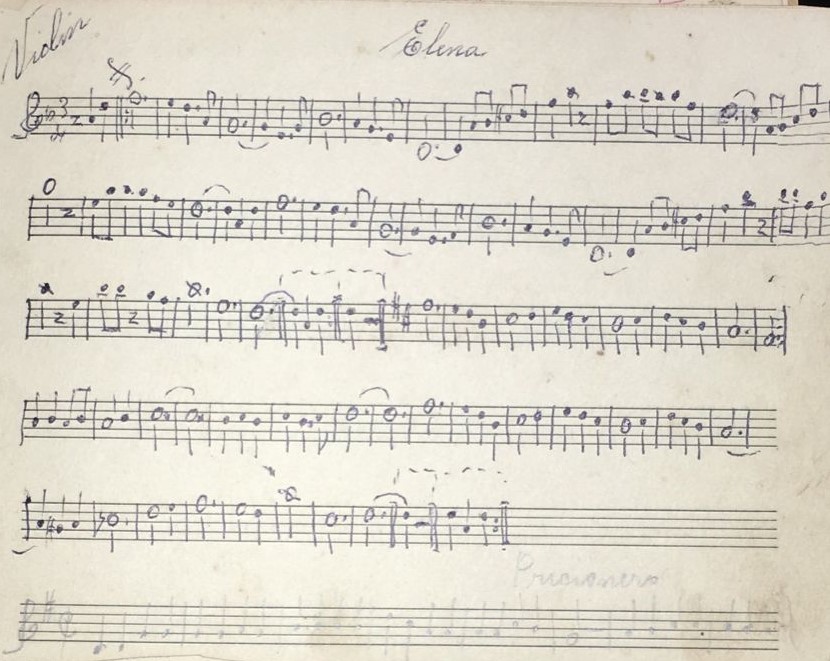 Violin
Elena
3
4
Pricionero